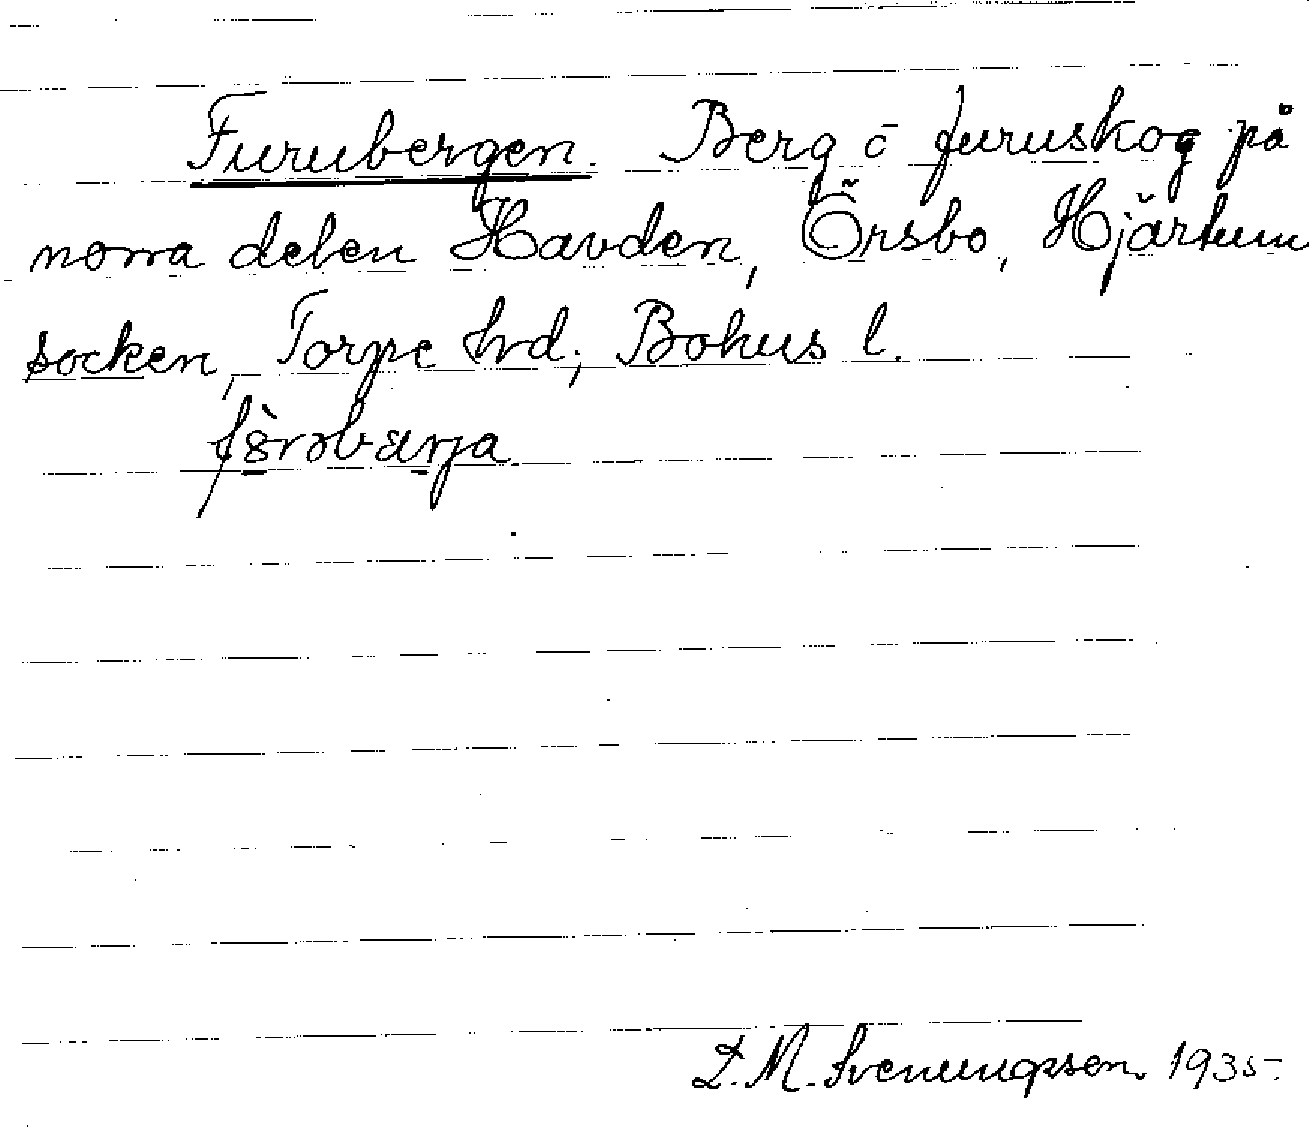 Furubergen. Berg o furuskog på
norra delen Havden, Örsbo, Hjärtum
socken, Torpe hrd; Bohus l.
L. M. Svenungsson. 1935.